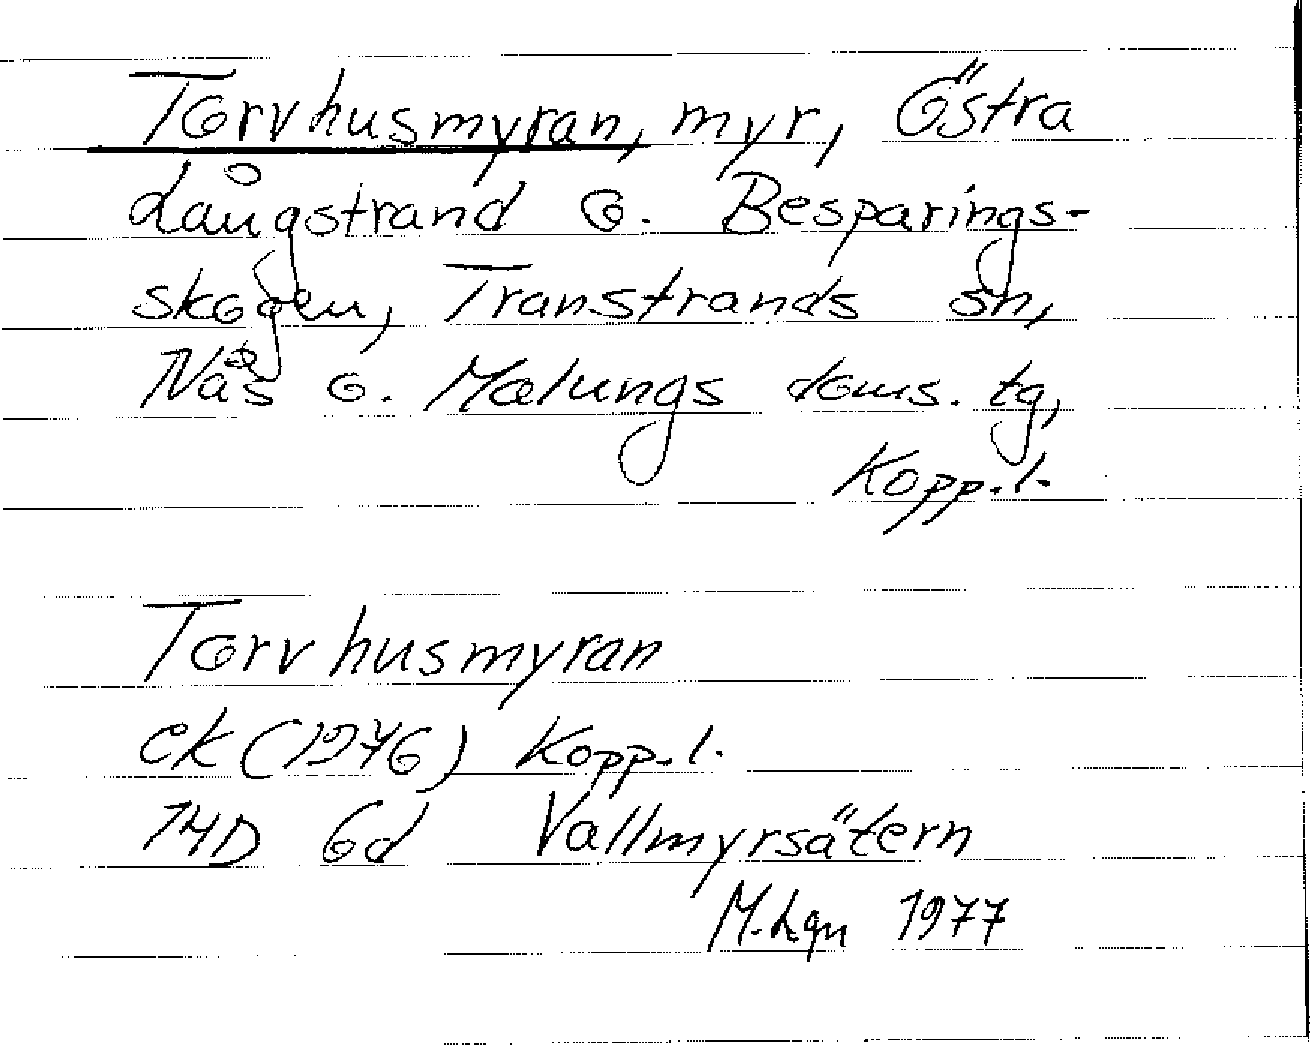 Torvhusmyran, myr, Östra
Långstrand o. Besparings-
skogen, Transtrands sn,
Nås o. Malungs doms. tg,
Kopp. l.
Torvhusmyran
ek (1976) Kopp. l.
14D 6d Vallmyrsätern
M. Lgn 1977